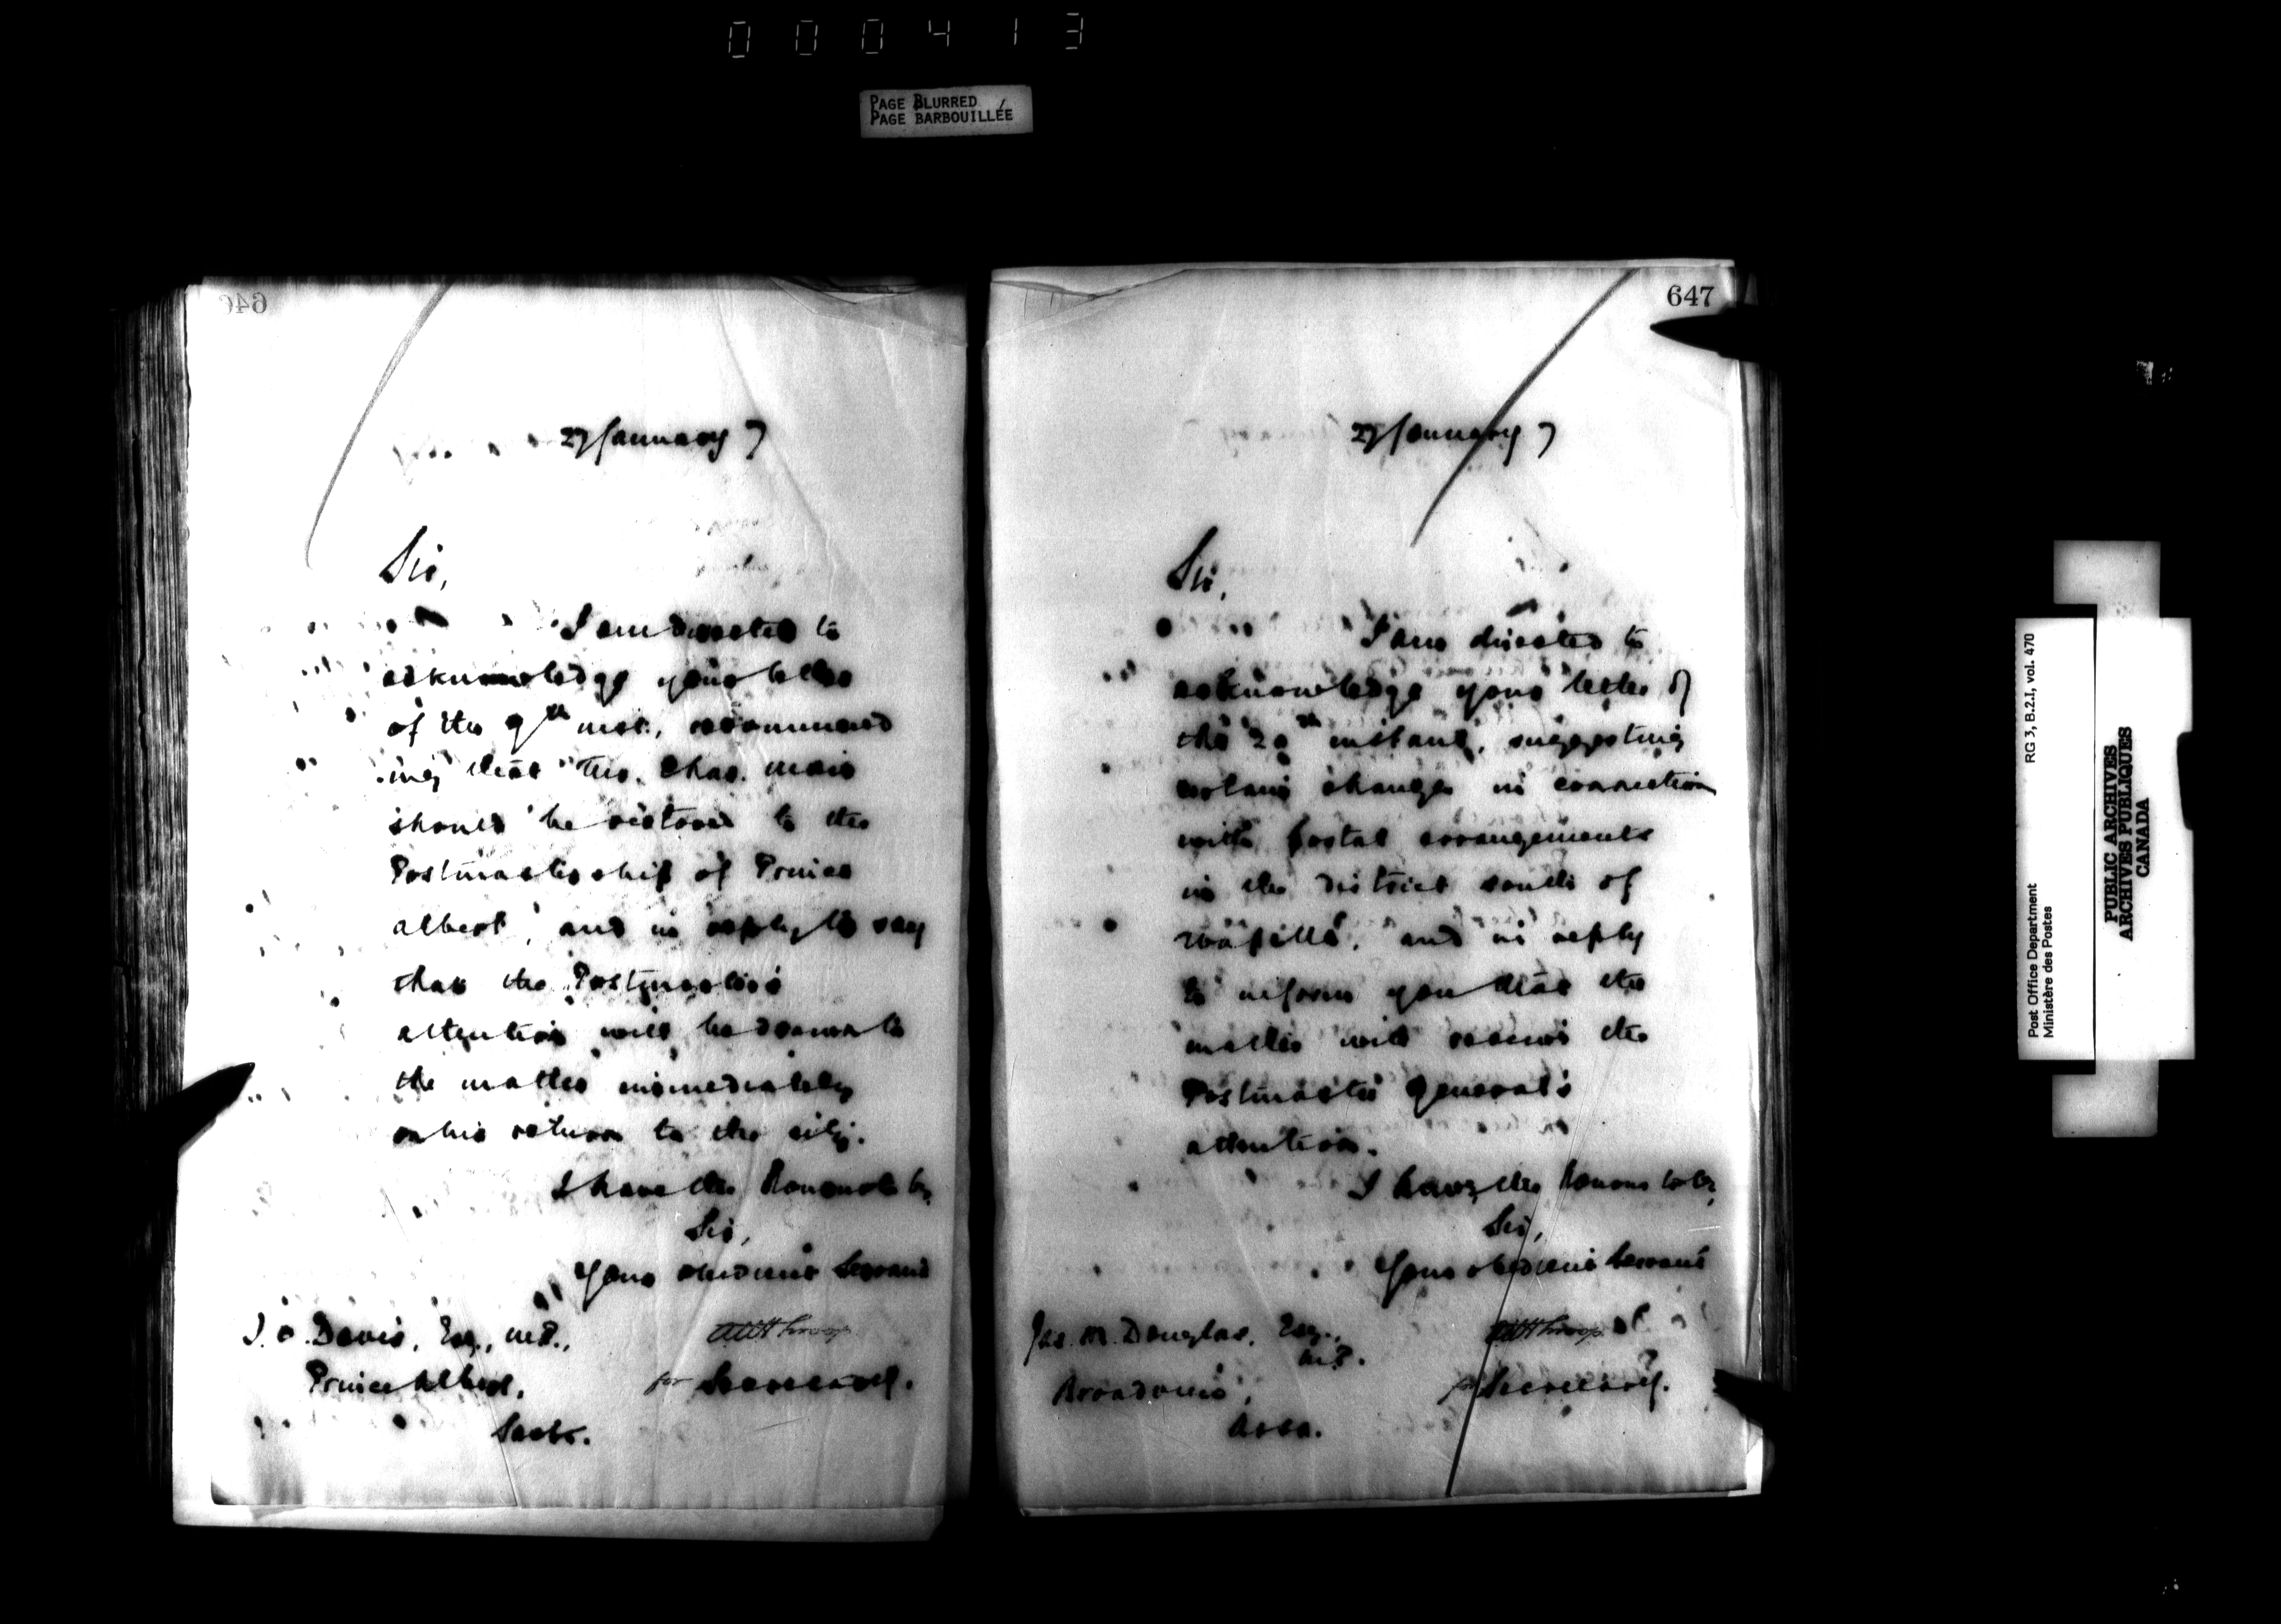 000413
PAGE BLURRED
PAGE BARBOUILLÉE
646
27 January 7
Sir,
I am directed to
acknowledge your letter
of the 9th inst., recommend
ing that Mr. Chas. Mair
should be restored to the
Postmastership of Prince
Albert, and in reply to say
that the Postmaster
attention will be drawn to
the matter immediately
on his return to the city.
I have the honour to be,
Sir,
Your obedient Servant
for Secretary.
T. O. Davis, Esq., M.P.,
Prince Albert,
Sask.
647
27 January 7
Sir,
I am directed to
acknowledge your letter of
the 20th instant, suggesting
certain changes in connection
with postal arrangements
in the district south of
Wapella, and in reply
to inform you that the
matter will receive the
Postmaster General's
attention.
I have the honour to be,
Sir,
Your obedient Servant
for Secretary.
Jas. M. Douglas, Esq.,
M.P.
Broadview,
Assa.
Post Office Department
Ministère des Postes
RG 3, B.2.I, vol. 470
PUBLIC ARCHIVES
ARCHIVES PUBLIQUES
CANADA